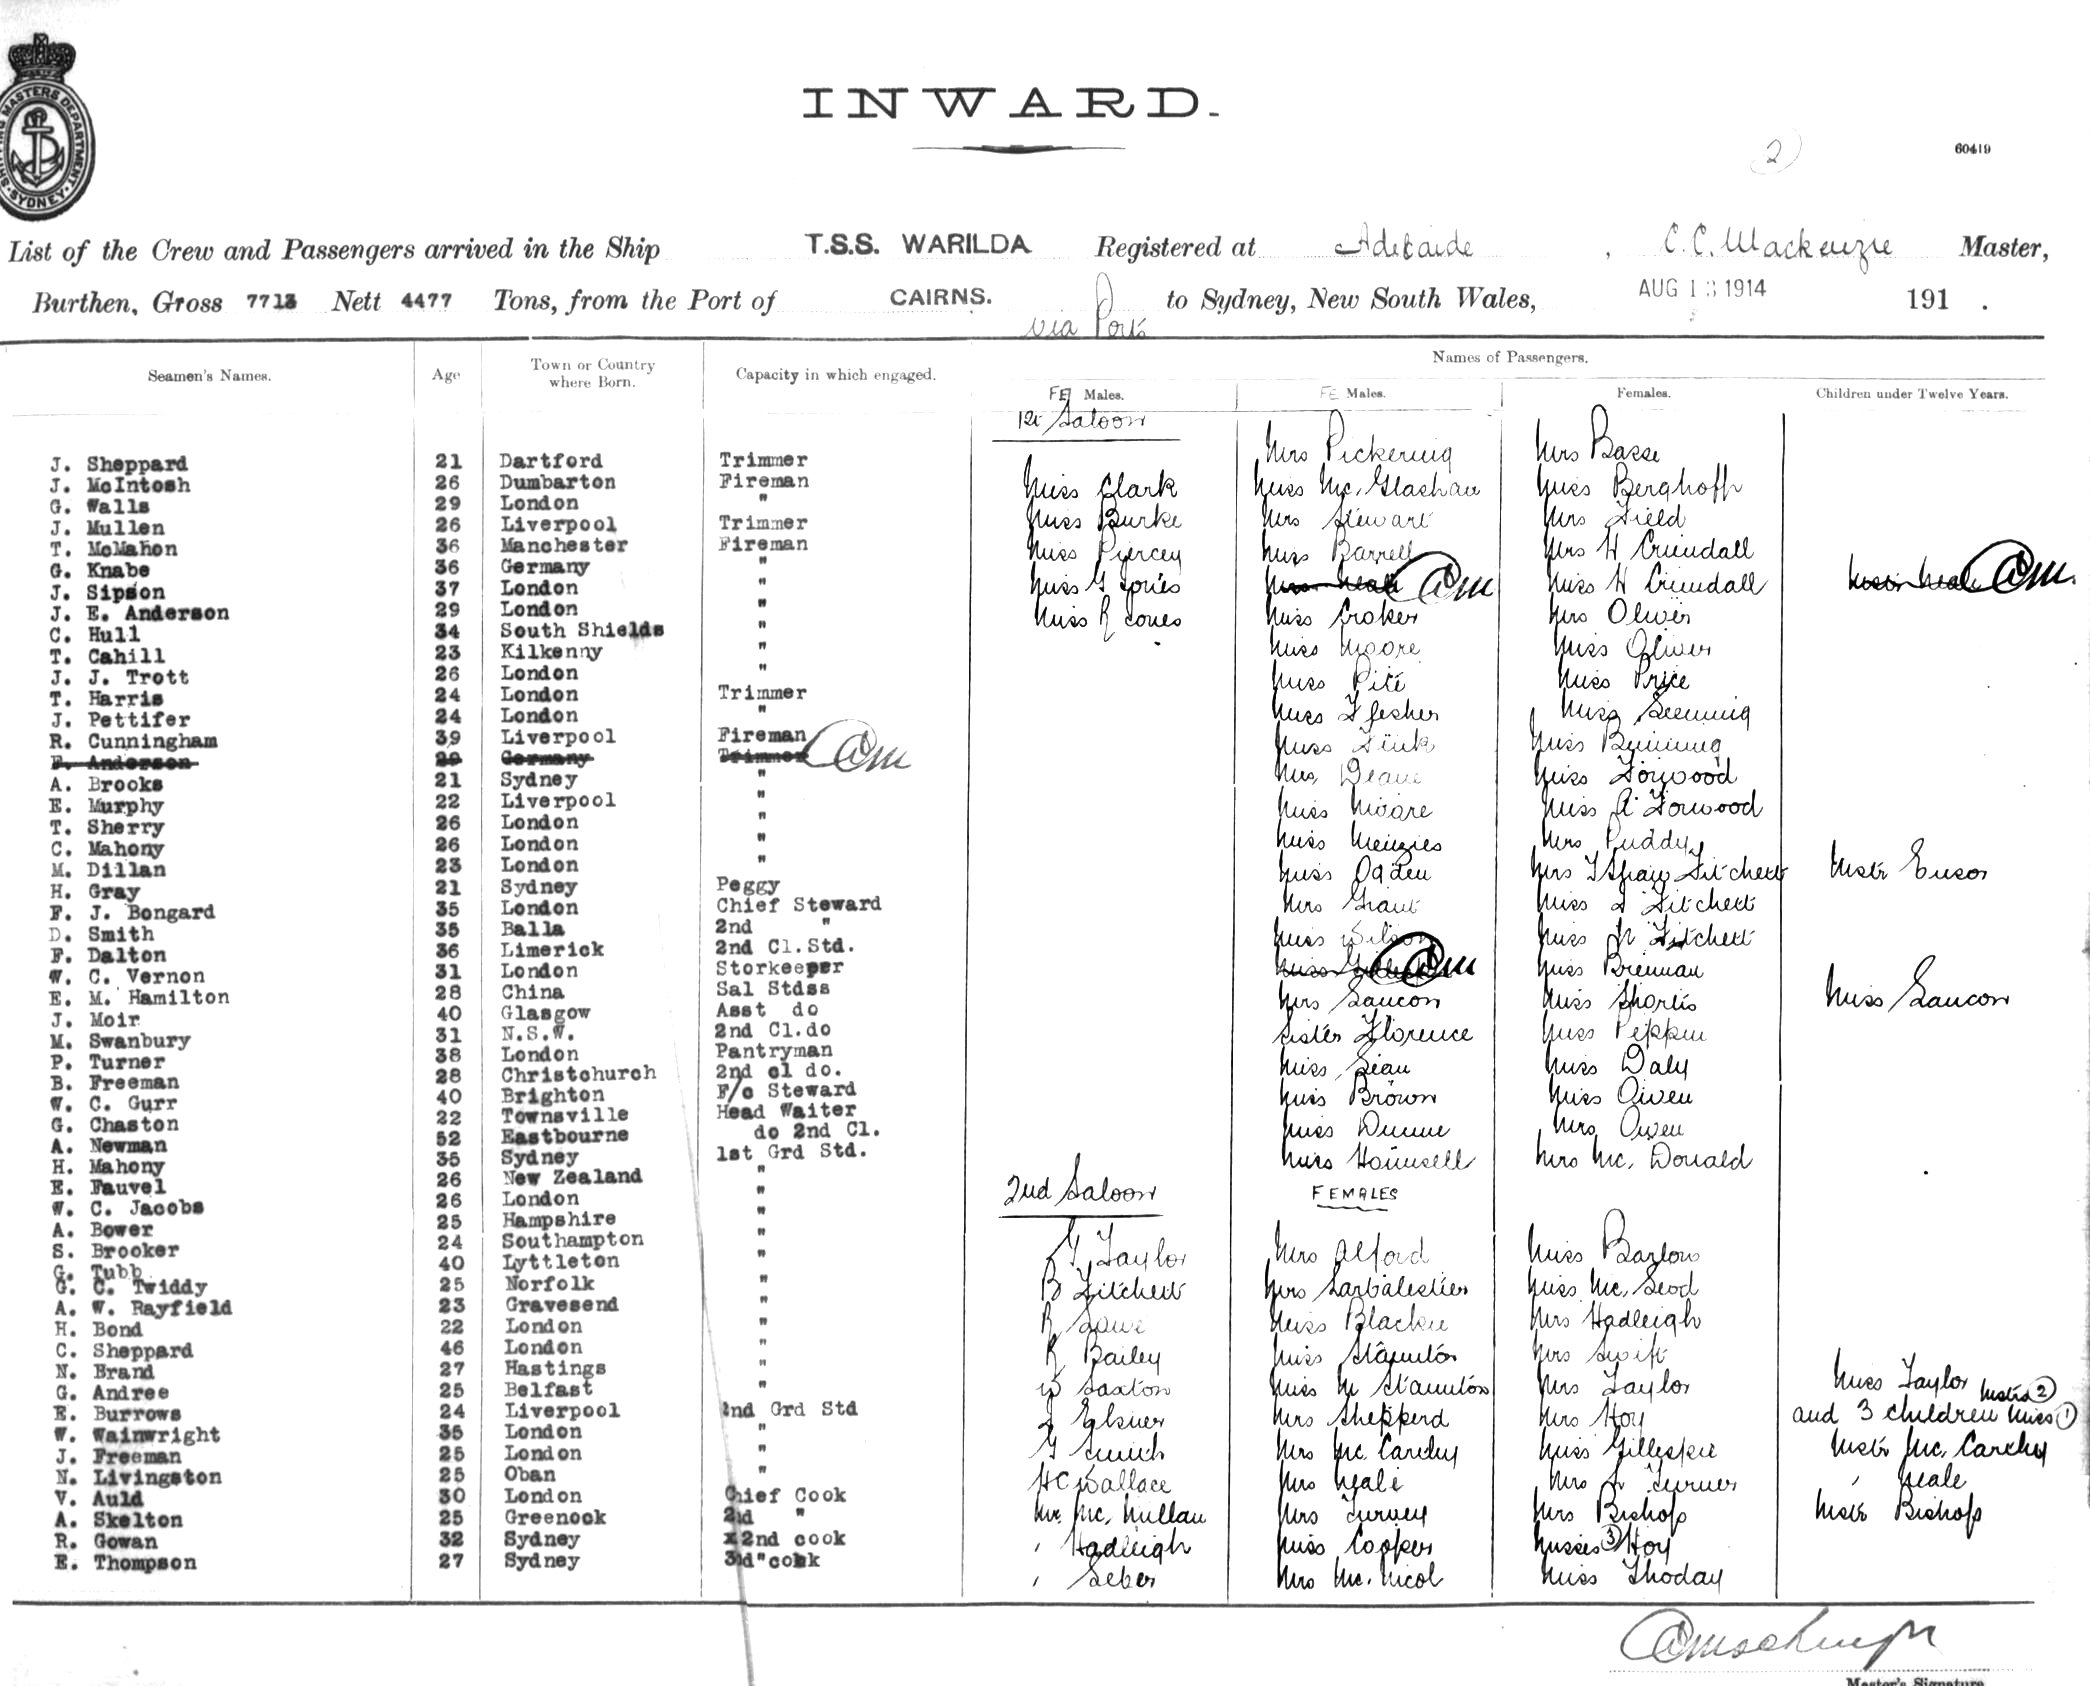 SHIPPING MASTERS DEPARTMENT. SYDNEY.
INWARD.
2
60419
List of the Crew and Passengers arrived in the Ship T.S.S. WARILDA Registered at Adelaide , C.C. Mackenzie Master,
Burthen, Gross 7713 Nett 4477 Tons, from the Port of CAIRNS. via Ports to Sydney, New South Wales, AUG 13 1914 191 .
Names of Passengers.
Seamen's Names. Age Town or Country where Born. Capacity in which engaged. FE Males. FE Males. Females. Children under Twelve Years.
1st Saloon
Mrs Pickering Mrs Basse
J. Sheppard 21 Dartford Trimmer
J. McIntosh 26 Dumbarton Fireman Miss Clark Miss Mc. Glashan Miss Berghoff
G. Walls 29 London " Miss Burke Mrs Stewart Mrs Field
J. Mullen 26 Liverpool Trimmer
T. McMahon 36 Manchester Fireman Miss Piercey Miss Barrell Mrs H Crundall
G. Knabe 36 Germany " Miss G Jones Mrs Neale CCM Miss H Crundall Mstr Neale CCM.
J. Sipson 37 London "
J. E. Anderson 29 London " Miss R Jones Miss Croker Mrs Oliver
C. Hull 34 South Shields " Miss Moore Miss Oliver
T. Cahill 23 Kilkenny "
J. J. Trott 26 London " Miss Pite Miss Price
T. Harris 24 London Trimmer
J. Pettifer 24 London " Miss
R. Cunningham 39 Liverpool Fireman Miss Fink Miss Binning
F. Anderson 29 Germany Trimmer CCM
A. Brooks 21 Sydney " Mrs Deane Miss Forwood
E. Murphy 22 Liverpool " Miss Moore Miss A Forwood
T. Sherry 26 London "
C. Mahony 26 London " Miss Menzies Mrs Puddy
M. Dillan 23 London " Miss Ogden Mrs T Shaw Fitchett Mstr Ensor
H. Gray 21 Sydney Peggy
F. J. Bongard 35 London Chief Steward Mrs Grant Miss Fitchett
D. Smith 35 Balla 2nd " Miss Wilson Miss N Fitchett
F. Dalton 36 Limerick 2nd Cl.Std.
W. C. Vernon 31 London Storkeeper Miss CCM Miss Brennan
E. M. Hamilton 28 China Sal Stdss Mrs Saucon Miss Shortis Miss Saucon
J. Moir 40 Glasgow Asst do
M. Swanbury 31 N.S.W. 2nd Cl.do Sister Florence Miss Peppin
P. Turner 38 London Pantryman Miss Sean Miss Daly
B. Freeman 28 Christchurch 2nd cl do.
W. C. Gurr 40 Brighton F/c Steward Miss Brown Miss Owen
G. Chaston 22 Townsville Head Waiter Miss Dunne Mrs Owen
A. Newman 52 Eastbourne do 2nd Cl.
H. Mahony 35 Sydney 1st Grd Std. Miss Hounsell Mrs Mc. Donald
E. Fauvel 26 New Zealand " 2nd Saloon FEMALES
W. C. Jacobs 26 London "
A. Bower 25 Hampshire "
S. Brooker 24 Southampton " G Taylor Mrs Alford Miss Barlow
G. Tubb 40 Lyttleton "
G. C. Twiddy 25 Norfolk " B Fitchett Mrs Sarbalestier Miss Mc. Leod
A. W. Rayfield 23 Gravesend " R Miss Blackie Mrs Hadleigh
H. Bond 22 London "
C. Sheppard 46 London " R Bailey Miss Staunton Mrs Swift
N. Brand 27 Hastings "
G. Andree 25 Belfast " W Saxton Miss M Staunton Mrs Taylor Miss Taylor Mstrs 2
E. Burrows 24 Liverpool 2nd Grd Std J Elsner Mrs Shepperd Mrs Hoy and 3 children Miss 1
W. Wainwright 35 London " G Smith Mrs Mc. Carthy Miss Gillespie Mstr Mc. Carthy
J. Freeman 25 London "
N. Livingston 25 Oban " H C Wallace Mrs Neale Mrs Turner " Neale
V. Auld 30 London Chief Cook
A. Skelton 25 Greenock 2nd " Mr. Mc. Millan Mrs Turvey Mrs Bishop Mstr Bishop
R. Gowan 32 Sydney x2nd cook " Hadleigh Miss Cooper Misses 3 Hoy
E. Thompson 27 Sydney 3rd "cook " Seber Mrs Mc. Nicol Miss Thoday
CCMackenzie
Master's Signature